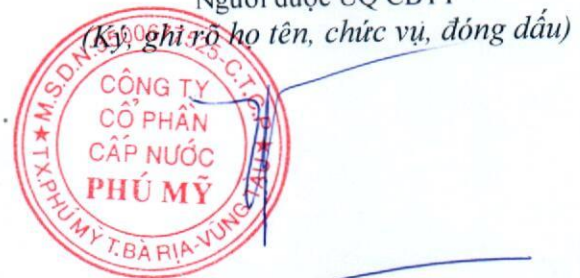 Người được UQ CBTT
(Ký, ghi rõ họ tên, chức vụ, đóng dấu)
CÔNG TY
CỔ PHẦN
CẤP NƯỚC
PHÚ MỸ
★ TX.PHÚ MỸ T.BÀ RỊA-VŨNG TÀU ★